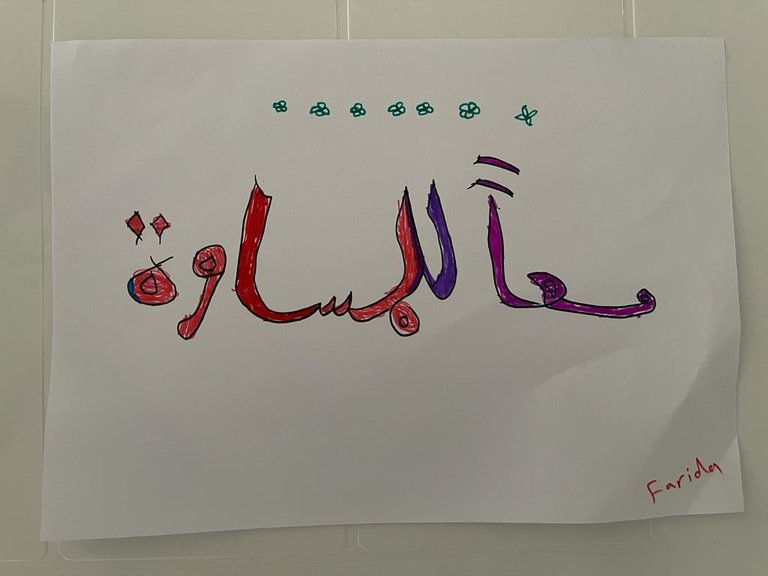 معاً للمساوة
Farida